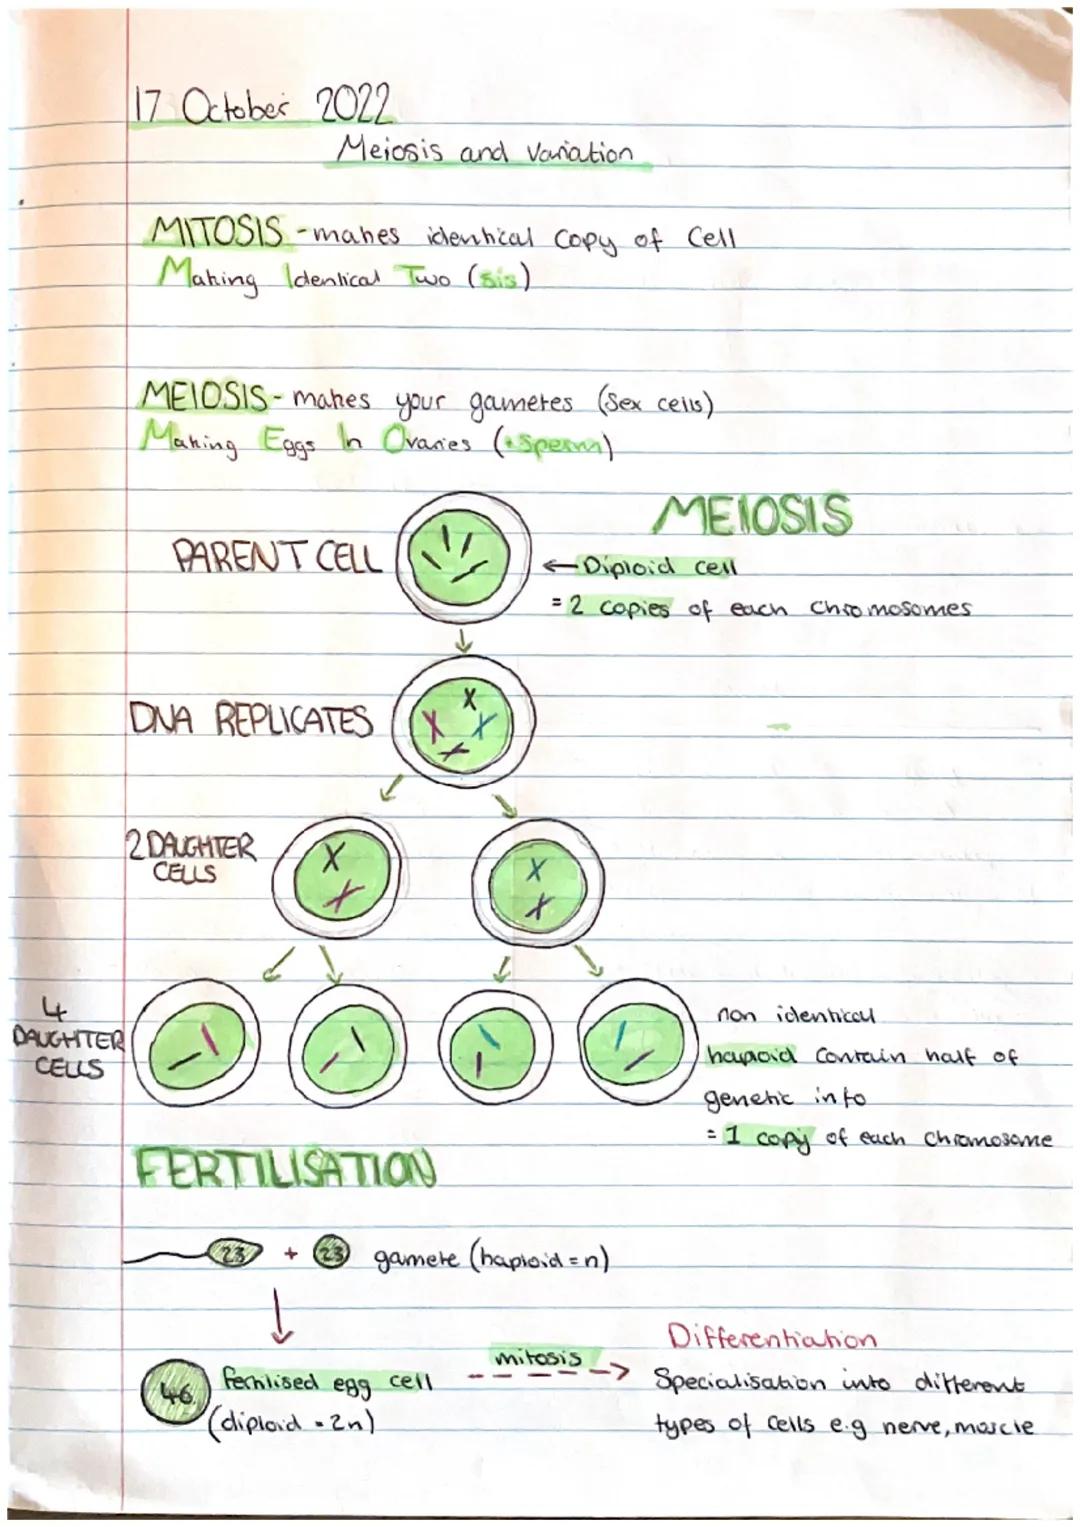 17 October 2022
Meiosis and Variation
MITOSIS - makes identical copy of Cell
Making Identical Two (sis)
MEIOSIS - makes your gametes (Sex cells)
Making Eggs In Ovaries (+Sperm)
MEIOSIS
PARENT CELL
← Diploid cell
= 2 copies of each chromosomes
DNA REPLICATES
2 DAUGHTER
CELLS
4
DAUGHTER
CELLS
non identical
haploid contain half of
genetic info
= 1 copy of each chromosome
FERTILISATION
23 + 23 gamete (haploid = n)
mitosis
Differentiation
46 fertilised egg cell
(diploid = 2n)
Specialisation into different
types of cells e.g nerve, muscle